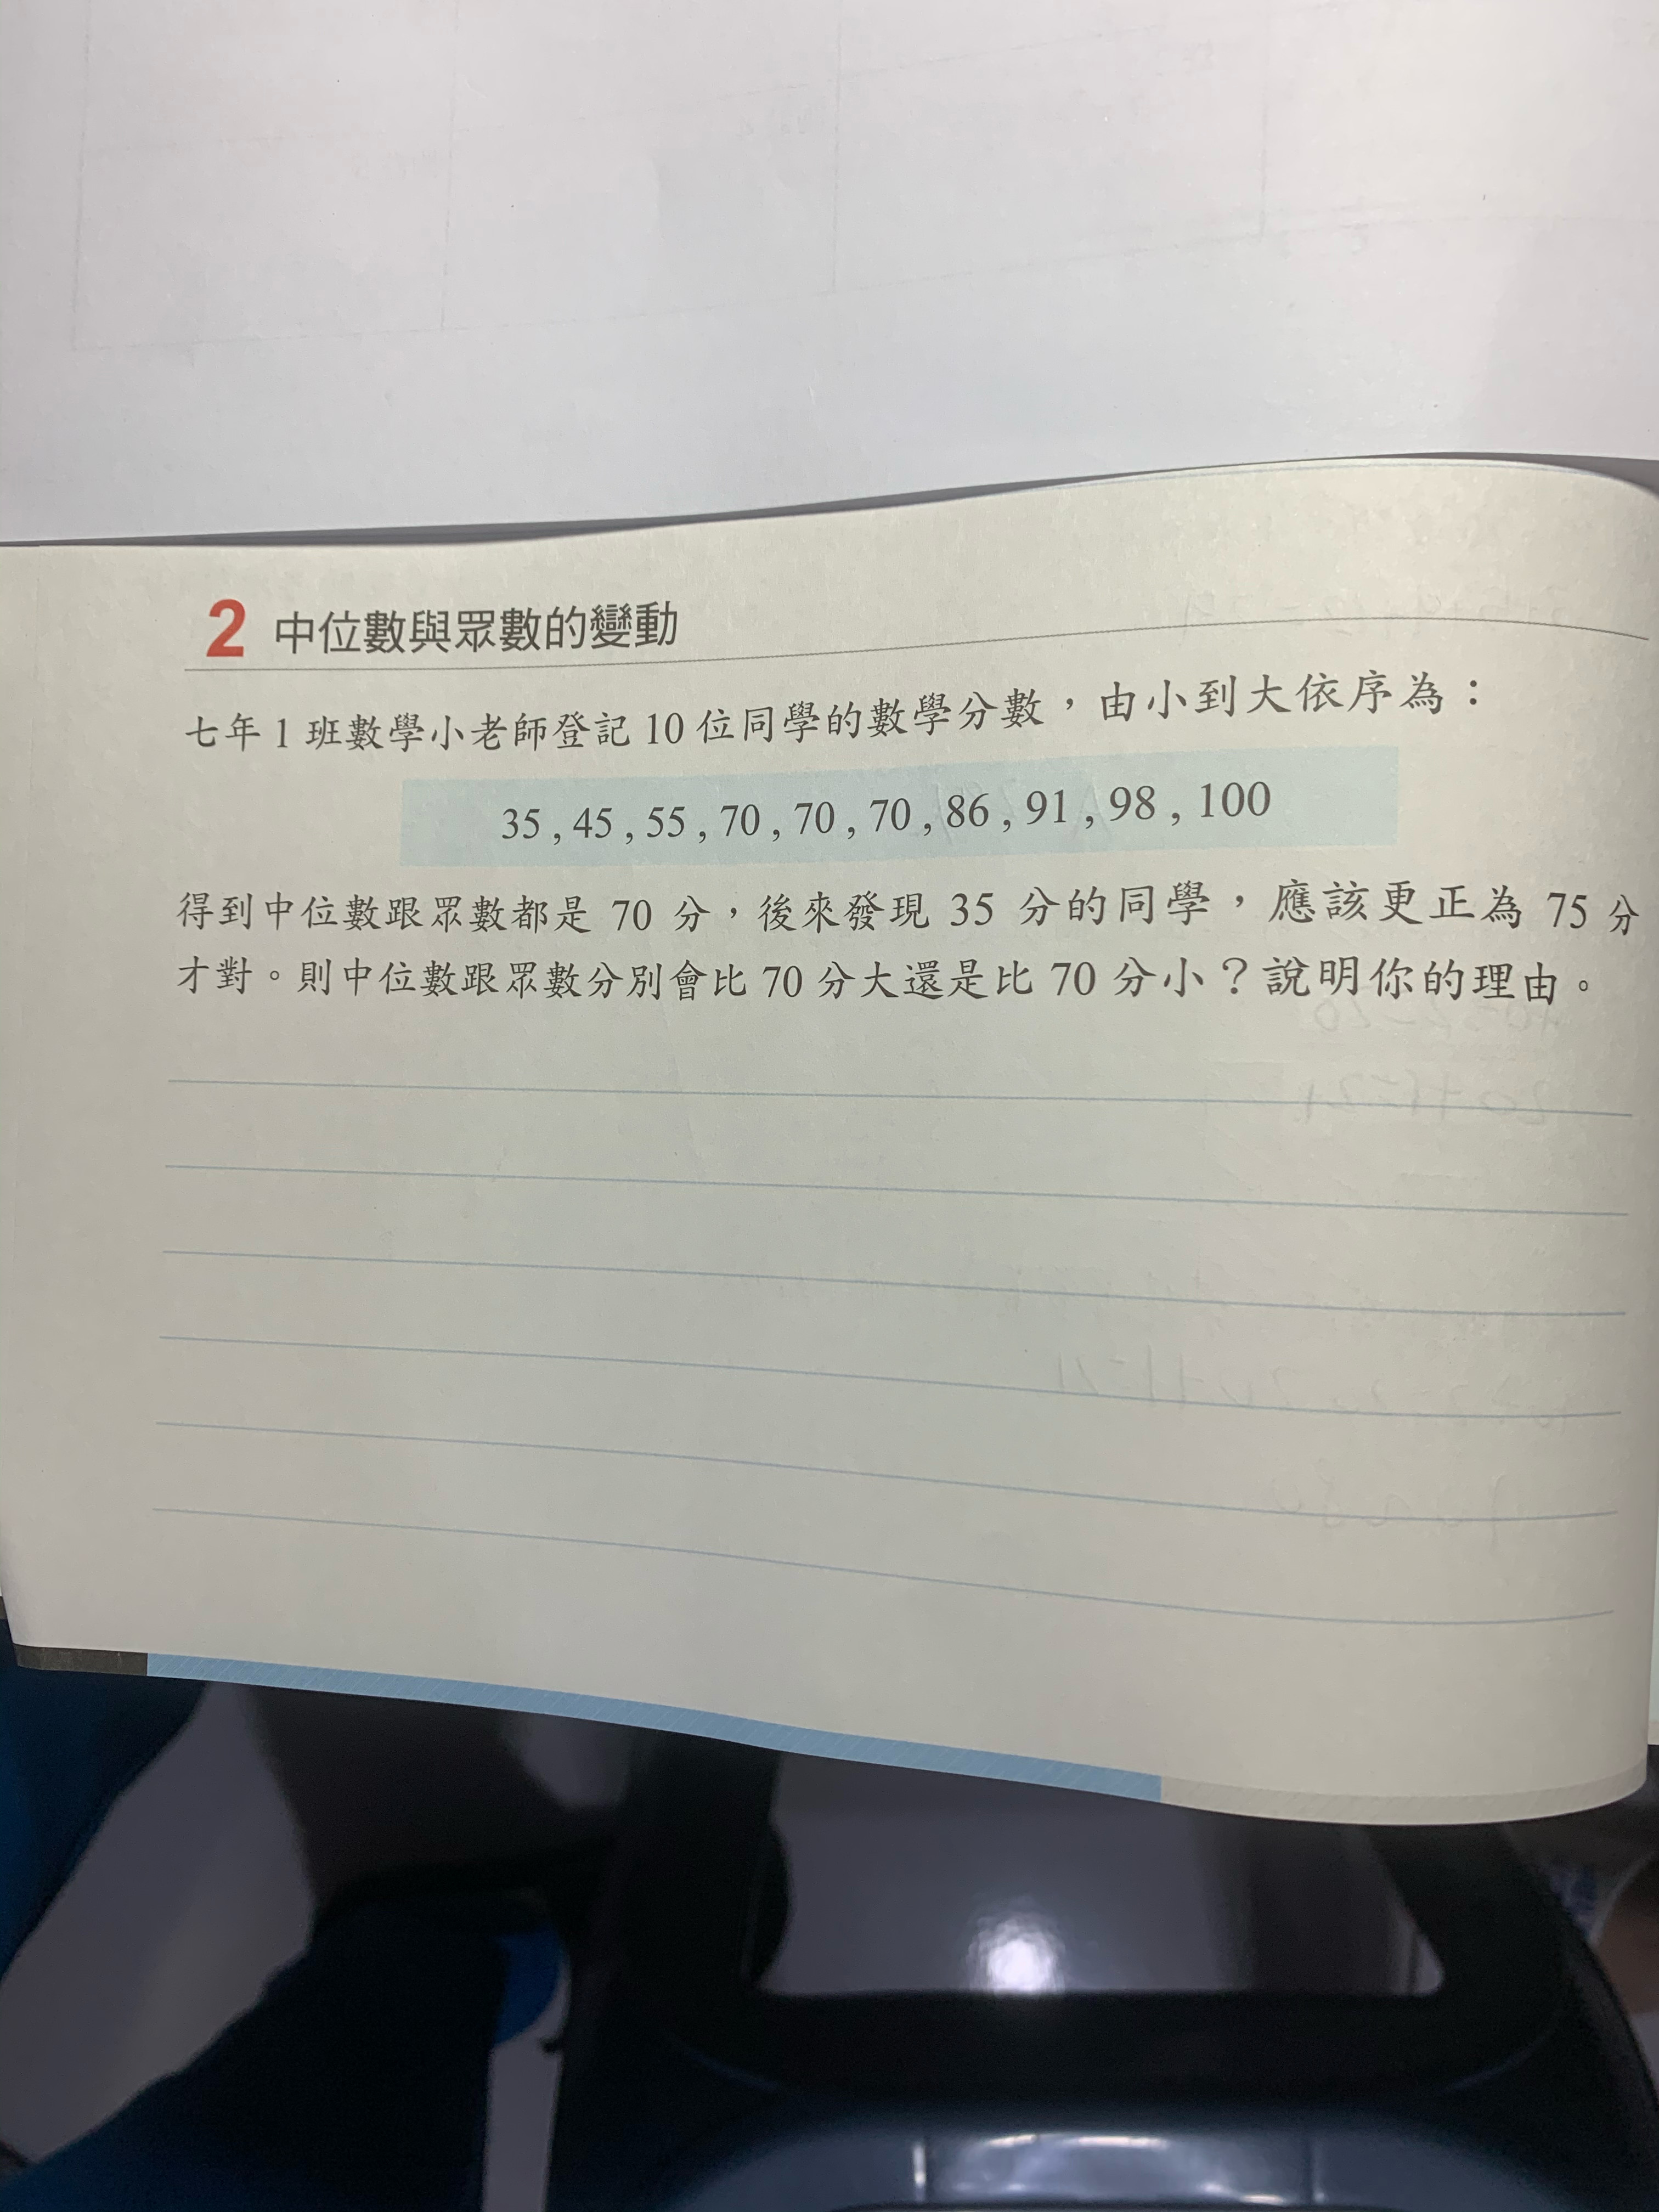 2 中位數與眾數的變動
七年 1 班數學小老師登記 10 位同學的數學分數，由小到大依序為：
35 , 45 , 55 , 70 , 70 , 70 , 86 , 91 , 98 , 100
得到中位數跟眾數都是 70 分，後來發現 35 分的同學，應該更正為 75 分
才對。則中位數跟眾數分別會比 70 分大還是比 70 分小？說明你的理由。